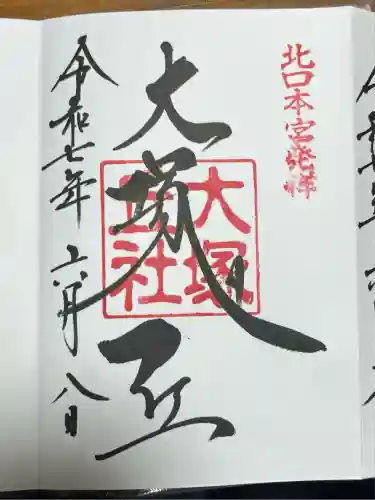 北口本宮発祥
大塚丘
大塚丘社
令和七年 六月 八日